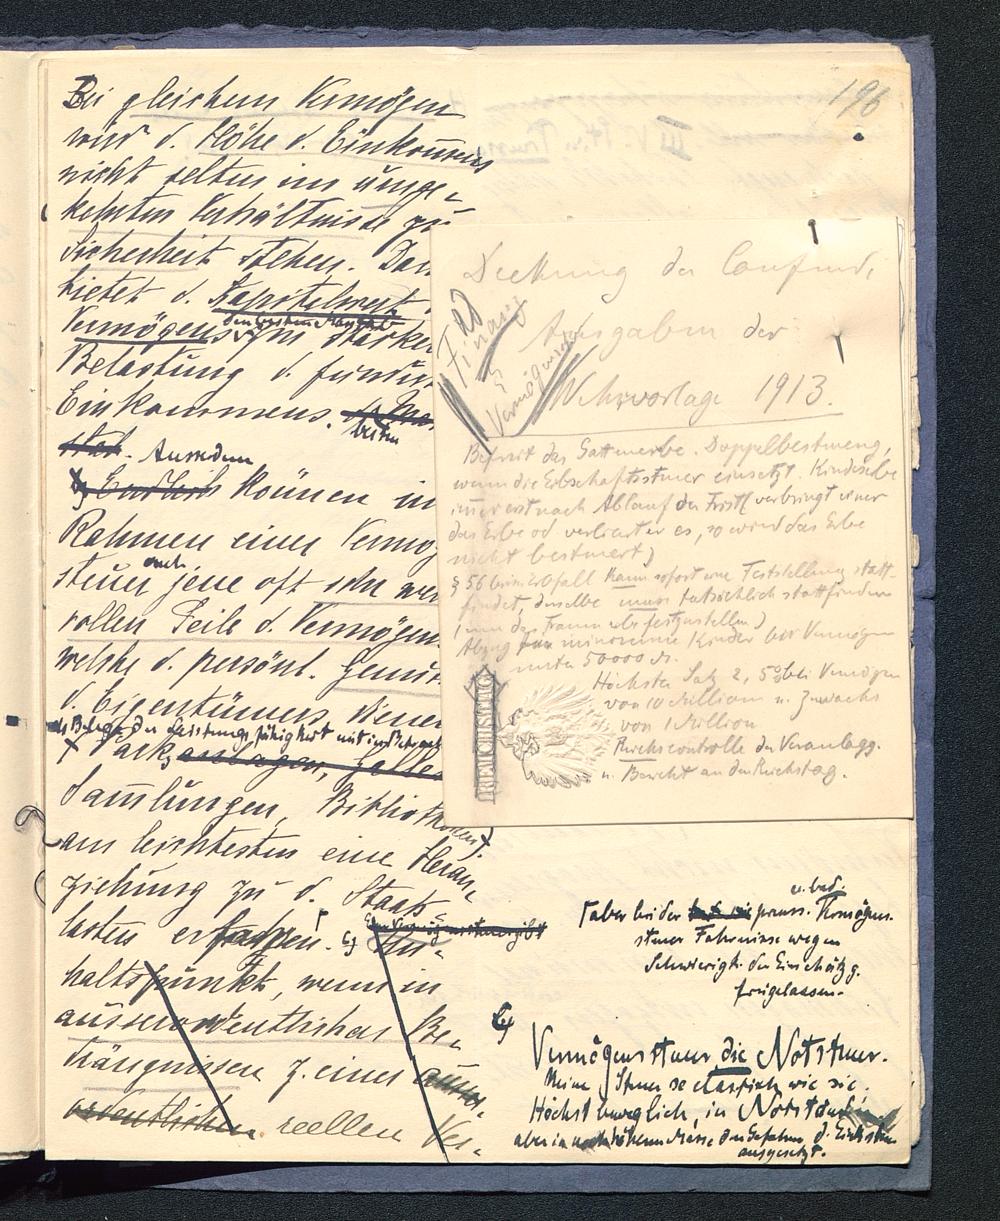 196
Bei gleichem Vermögen
wird d. Höhe d. Einkomens
nicht selten im umge-
kehrten Verhältnisse zu
Sicherheit stehen. Dar
bietet d. Kapitalwert
den besten Massstab
Vermögens zur stärker
Belastung d. fundirt
Einkommens.
besten
Ausserdem
können im
Rahmen einer Vermög
auch
steuer jene oft sehr wer
vollen Teile d. Vermögen
welche d. persönl. Genus
d. Eigentümers dienen
als Belege der Leistungsfähigkeit mit
Park anlagen,
Samlungen, Bibliotheken).
am leichtesten eine Heran-
ziehung zu d. Staats
lasten erfahren.
Eine Vermögenssteuer gibt
haltspunkt, wenn in
ausserordentlichen Be-
drängnissen z. einer ausser-
ordentlichen reellen Ver-
Deckung der laufend.
Ausgaben der
Wehrvorlage 1913.
Finanz
Vermögens
Befreit das Gattenerbe. Doppelbesteuerung,
wenn die Erbschaftssteuer einsetzt. Kindeserbe
immer erst nach Ablauf der Frist (verbringt einer
das Erbe od verliert er es, so wird das Erbe
nicht besteuert)
§ 56 beim Erbfall kann sofort eine Feststellung statt-
findet, dieselbe muss tatsächlich stattfinden
Abzug für minorenne Kinder bei Vermögen
unter 50000 M.
Höchster Satz 2,5% bei Vermögen
von 10 Million u. Zuwachs
von 1 Million
Reichscontrolle der Veranlagg.
u. Bericht an den Reichstag.
REICHSTAG
u. bad.
aber bei der preuss. Vermögen-
steuer Fahrnisse wegen
Schwierigk. der Einschätzg.
freigelassen.
Vermögenssteuer die Notsteuer.
Keine Steuer so elastisch wie sie.
Höchst beweglich, in Notständen
aber in noch höherem Masse den Gefahren d.
ausgesetzt.